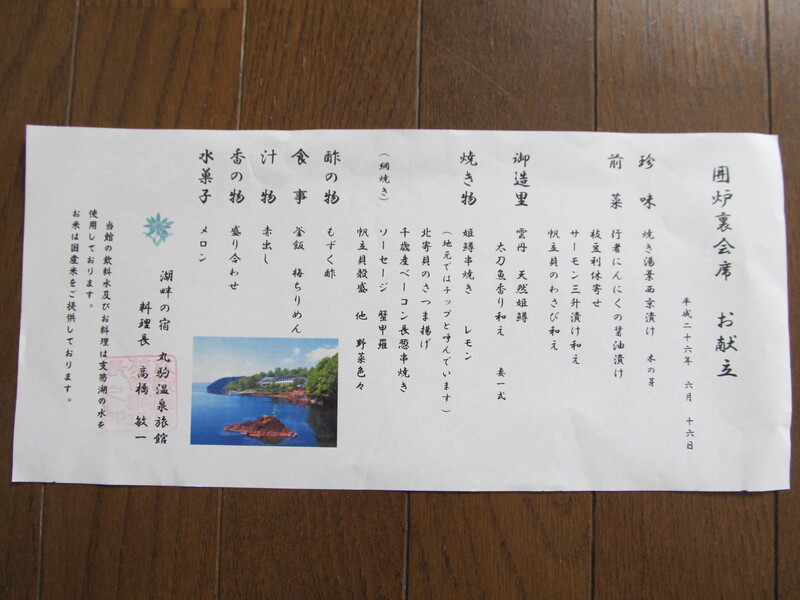 囲炉裏会席　お献立
平成二十六年　六月　十六日
珍　味　焼き湯葉西京漬け　木の芽
前　菜　行者にんにくの醤油漬け
枝豆利休寄せ
サーモン三升漬け和え
帆立貝のわさび和え
御造里　雲丹　天然姫鱒
太刀魚香り和え　妻一式
焼き物　姫鱒串焼き　レモン
（地元ではチップと呼んでいます）
北寄貝のさつま揚げ
千歳産ベーコン長葱串焼き
（網焼き）　ソーセージ　蟹甲羅
帆立貝殻盛　他　野菜色々
酢の物　もずく酢
食　事　釜飯　梅ちりめん
汁　物　赤出し
香の物　盛り合わせ
水菓子　メロン
湖畔の宿　丸駒温泉旅館
料理長　高橋　敏一
当館の飲料水及びお料理は支笏湖の水を
使用しております。
お米は国産米をご提供しております。